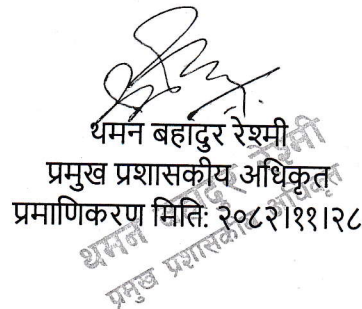 थमन बहादुर रेश्मी
प्रमुख प्रशासकीय अधिकृत
प्रमाणिकरण मितिः २०८२।११।२८
थमन बहादुर रेश्मी
प्रमुख प्रशासकीय अधिकृत